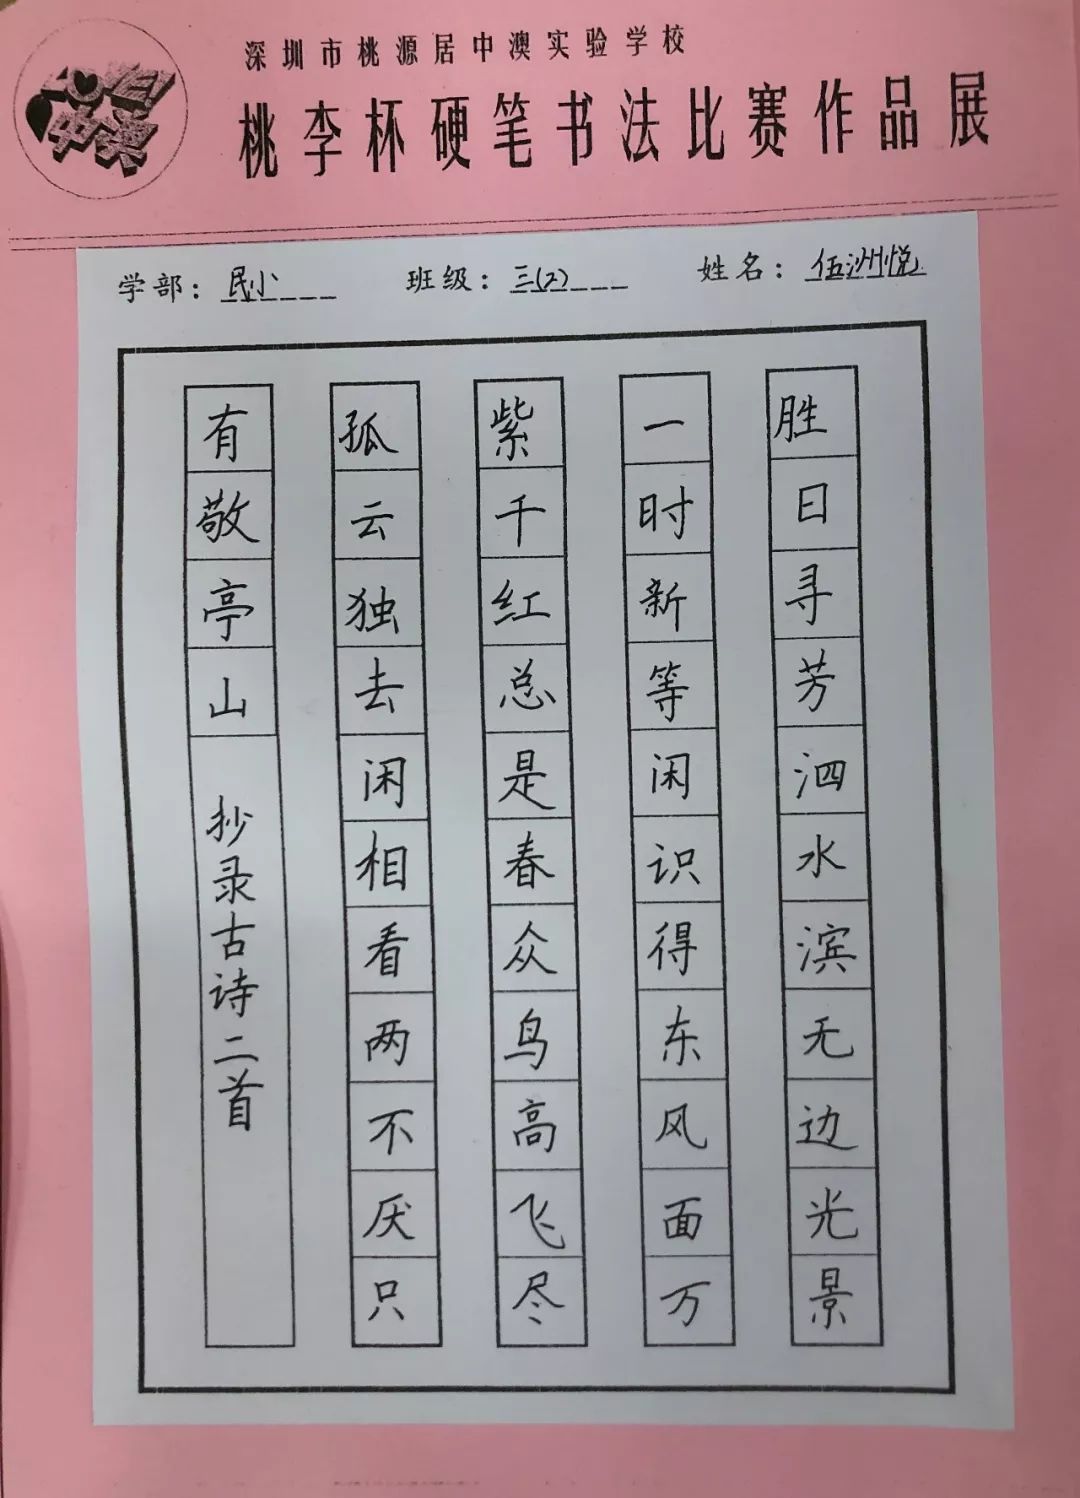 深圳市桃源居中澳实验学校
桃李杯硬笔书法比赛作品展
学部：民小 班级：三(2) 姓名：伍洲悦
胜日寻芳泗水滨无边光景
一时新等闲识得东风面万
紫千红总是春众鸟高飞尽
孤云独去闲相看两不厌只
有敬亭山抄录古诗二首